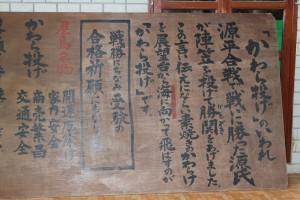 「かわら投げ」のいわれ
源平合戦で戦に勝った源氏
が陣笠を投げて勝閧をあげました。
その言い伝えにならい素焼きのかわらけ
を展望台から海に向かって飛ばすのが
「かわら投げ」です。
戦勝にちなみ受験の
合格祈願にもなります
開運厄除け
家内安全
商売繁昌
交通安全
かわら投げ